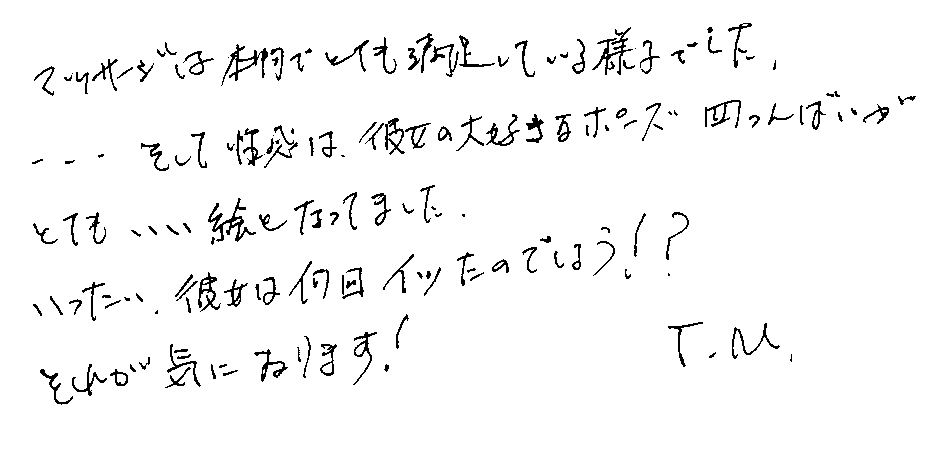 マッサージは本物でとても満足している様子でした。
・・・そして性感は、彼女の大好きなポーズ 四つんばいが
とてもいい絵となってました。
いったい、彼女は何回イッたのでしょう!?
それが気になります! T.M.